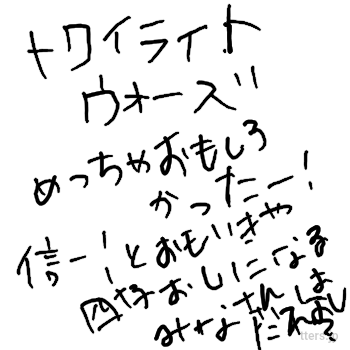 トワイライト
ウォーズ
めっちゃおもしろ
かったー!
信ー!とおもいきや
四季おしになる
みなさんしょ
tters.jp